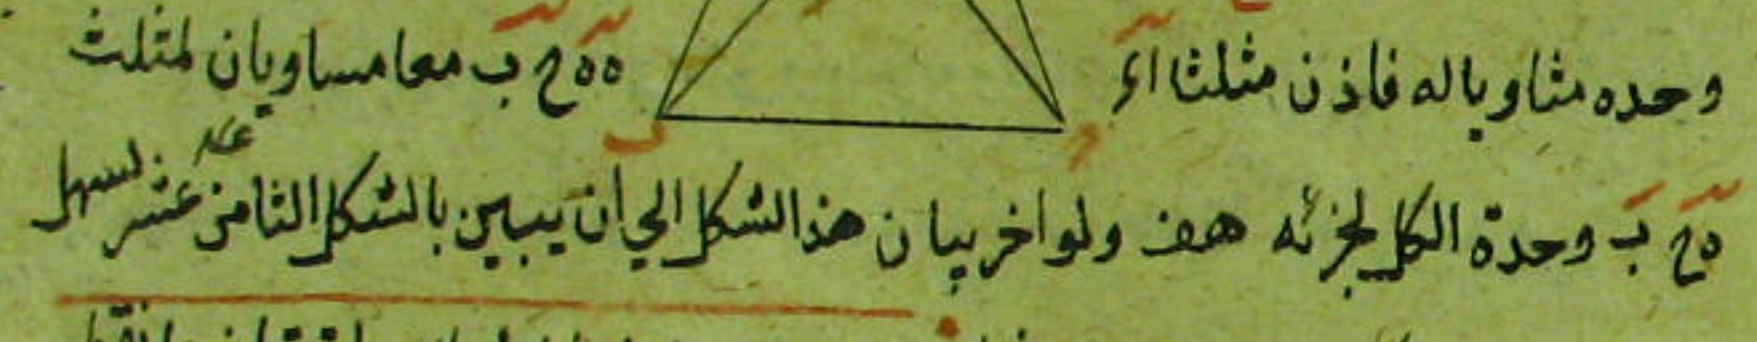 وحده مثاويا له فاذن مثلثا اء ه ه ح ب معا مساويان لمثلث
ه ح ب وحدة الكل لجزئه هف ولو اخر بيان هذا الشكل الي ان يبين بالشكل الثامن عشر لسهل